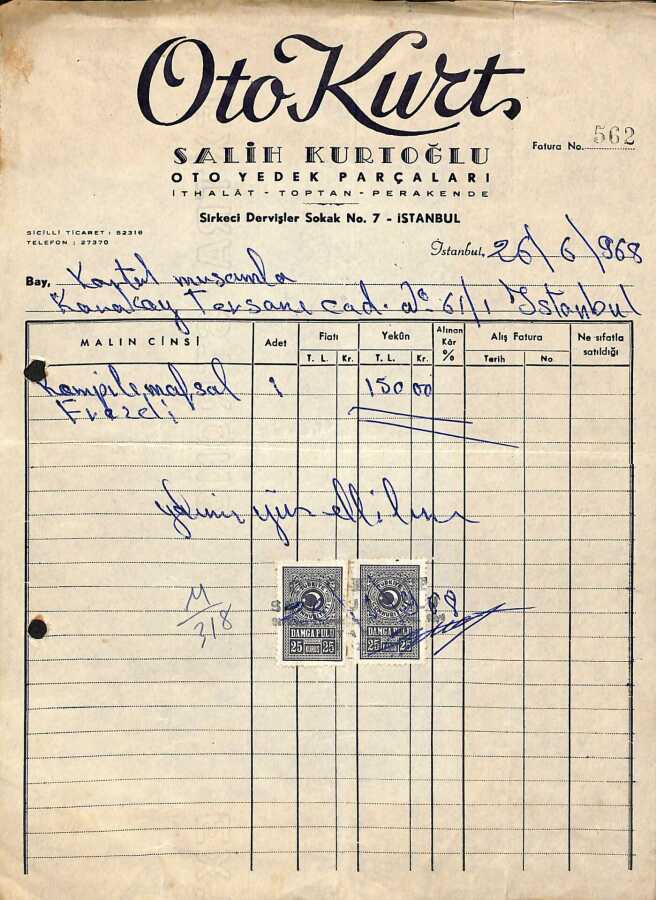 Oto Kurt
SALİH KURTOĞLU
OTO YEDEK PARÇALARI
İTHALÂT - TOPTAN - PERAKENDE
Sirkeci Dervişler Sokak No. 7 - İSTANBUL
Fatura No. 562
SİCİLLİ TİCARET : 52318
TELEFON : 27370
İstanbul, 26/6/968
Bay, Kartal muşamba
Karaköy Tersane cad. No 61/1 İstanbul
MALIN CİNSİ Adet Fiatı Yekûn Alınan Kâr % Alış Fatura Ne sıfatla satıldığı
T. L. Kr. T. L. Kr. Tarih No
Komple mafsal 1 150 00
yalnız yüz elli lira
M/318
DAMGA PULU DAMGA PULU
25 KURUŞ 25 25 KURUŞ 25